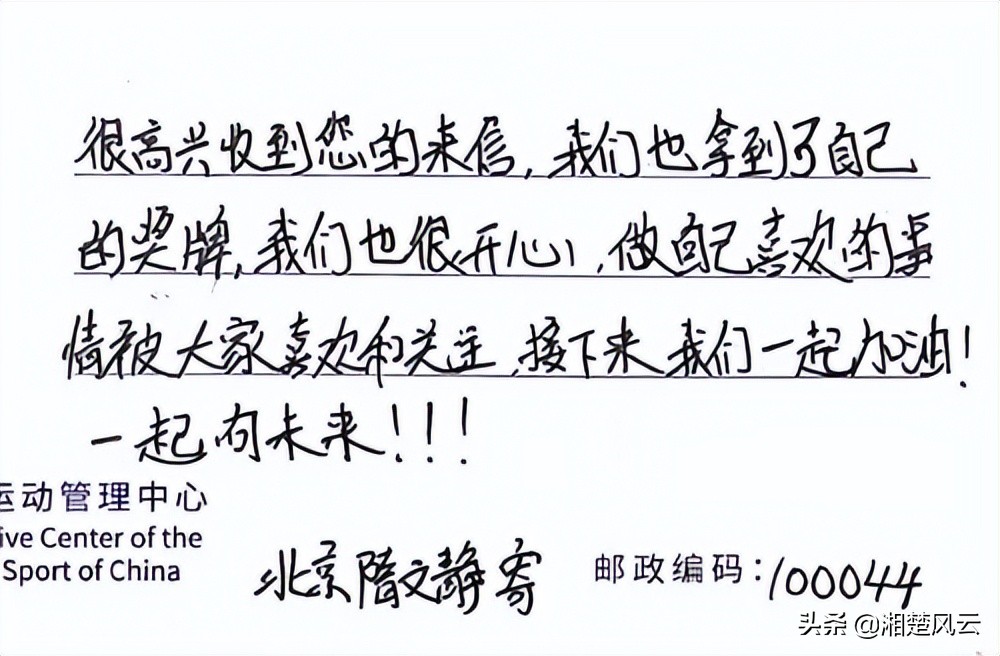 很高兴收到您的来信,我们也拿到了自己
的奖牌,我们也很开心,做自己喜欢的事
情被大家喜欢和关注,接下来我们一起加油!
一起向未来!!!
运动管理中心
ive Center of the
Sport of China
北京隋文静寄
邮政编码:100044
头条 @湘楚风云